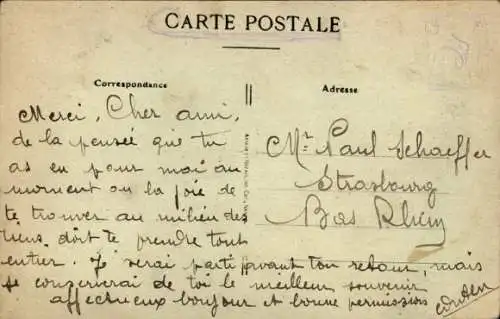 CARTE POSTALE
Correspondance
Adresse
Merci, Cher ami,
de la pensée que tu
as eu pour moi au
moment ou la joie de
te trouver au milieu des
tiens doit te prendre tout
entier. Je serai parti avant ton retour, mais
je conserverai de toi le meilleur souvenir
affectueux bonjour et bonne permission
Mr Paul Schaeffer
Strasbourg
Bas Rhin